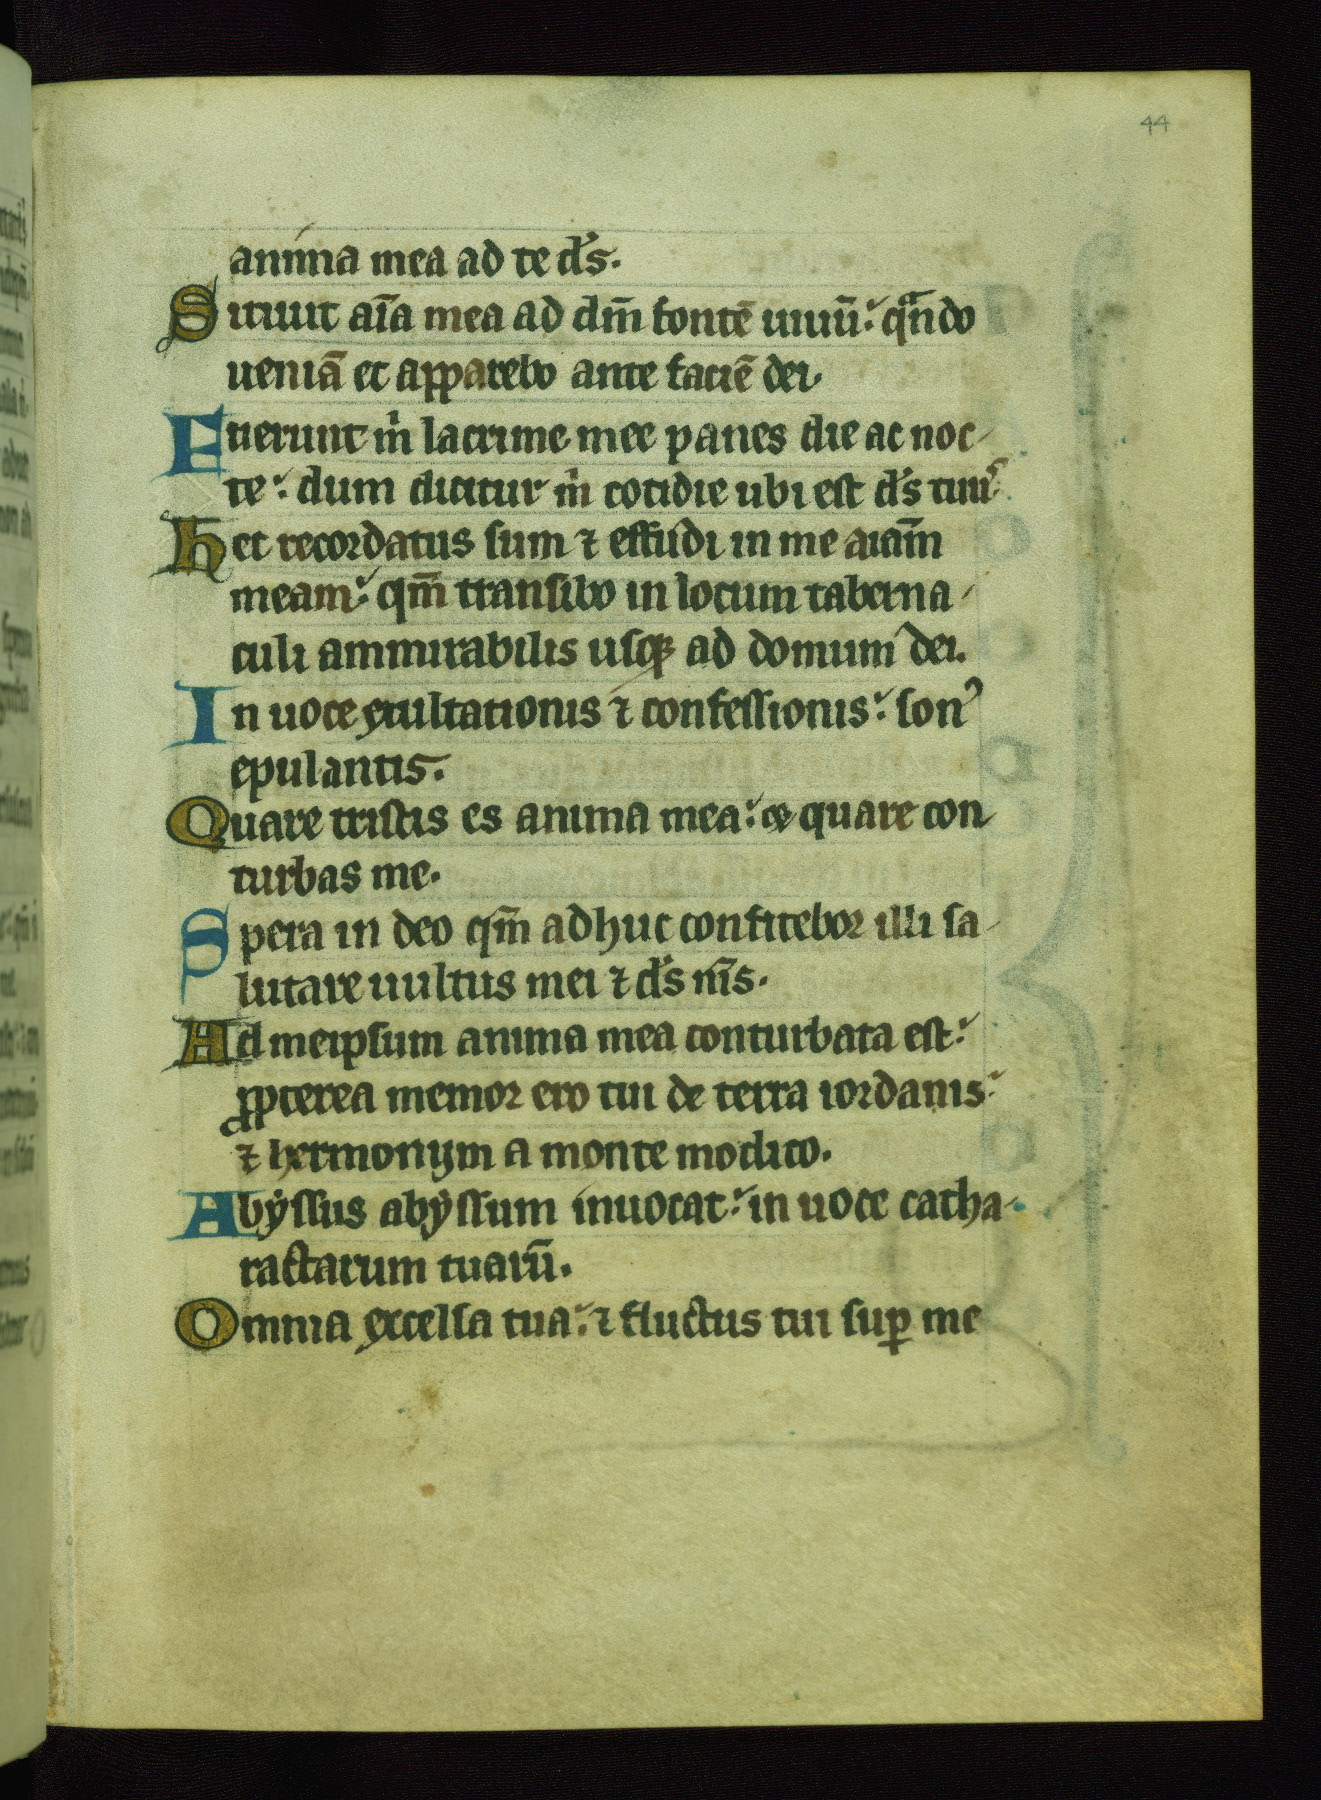 44
anima mea ad te ds̄.
Sitiuit aīa mea ad dm̄ fontē uiuū: qn̄do
ueniā et apparebo ante faciē dei.
Fuerunt m̄ lacrime mee panes die ac noc-
te: dum dicitur m̄ cotidie ubi est ds̄ tuus.
Hec recordatus sum ⁊ effudi in me aiam̄
meam: qm̄ transibo in locum taberna-
culi ammirabilis usqꝫ ad domum dei.
In uoce exultationis ⁊ confessionis: sonꝰ
epulantis.
Quare tristis es anima mea: et quare con-
turbas me.
Spera in deo qm̄ adhuc confitebor illi sa-
lutare uultus mei ⁊ ds̄ ms̄.
Ad meipsum anima mea conturbata est:
ꝓpterea memor ero tui de terra iordanis:
⁊ hermonijm a monte modico.
Abyssus abyssum inuocat: in uoce catha-
ractarum tuarū.
Omnia excelsa tua: ⁊ fluctus tui suꝑ me